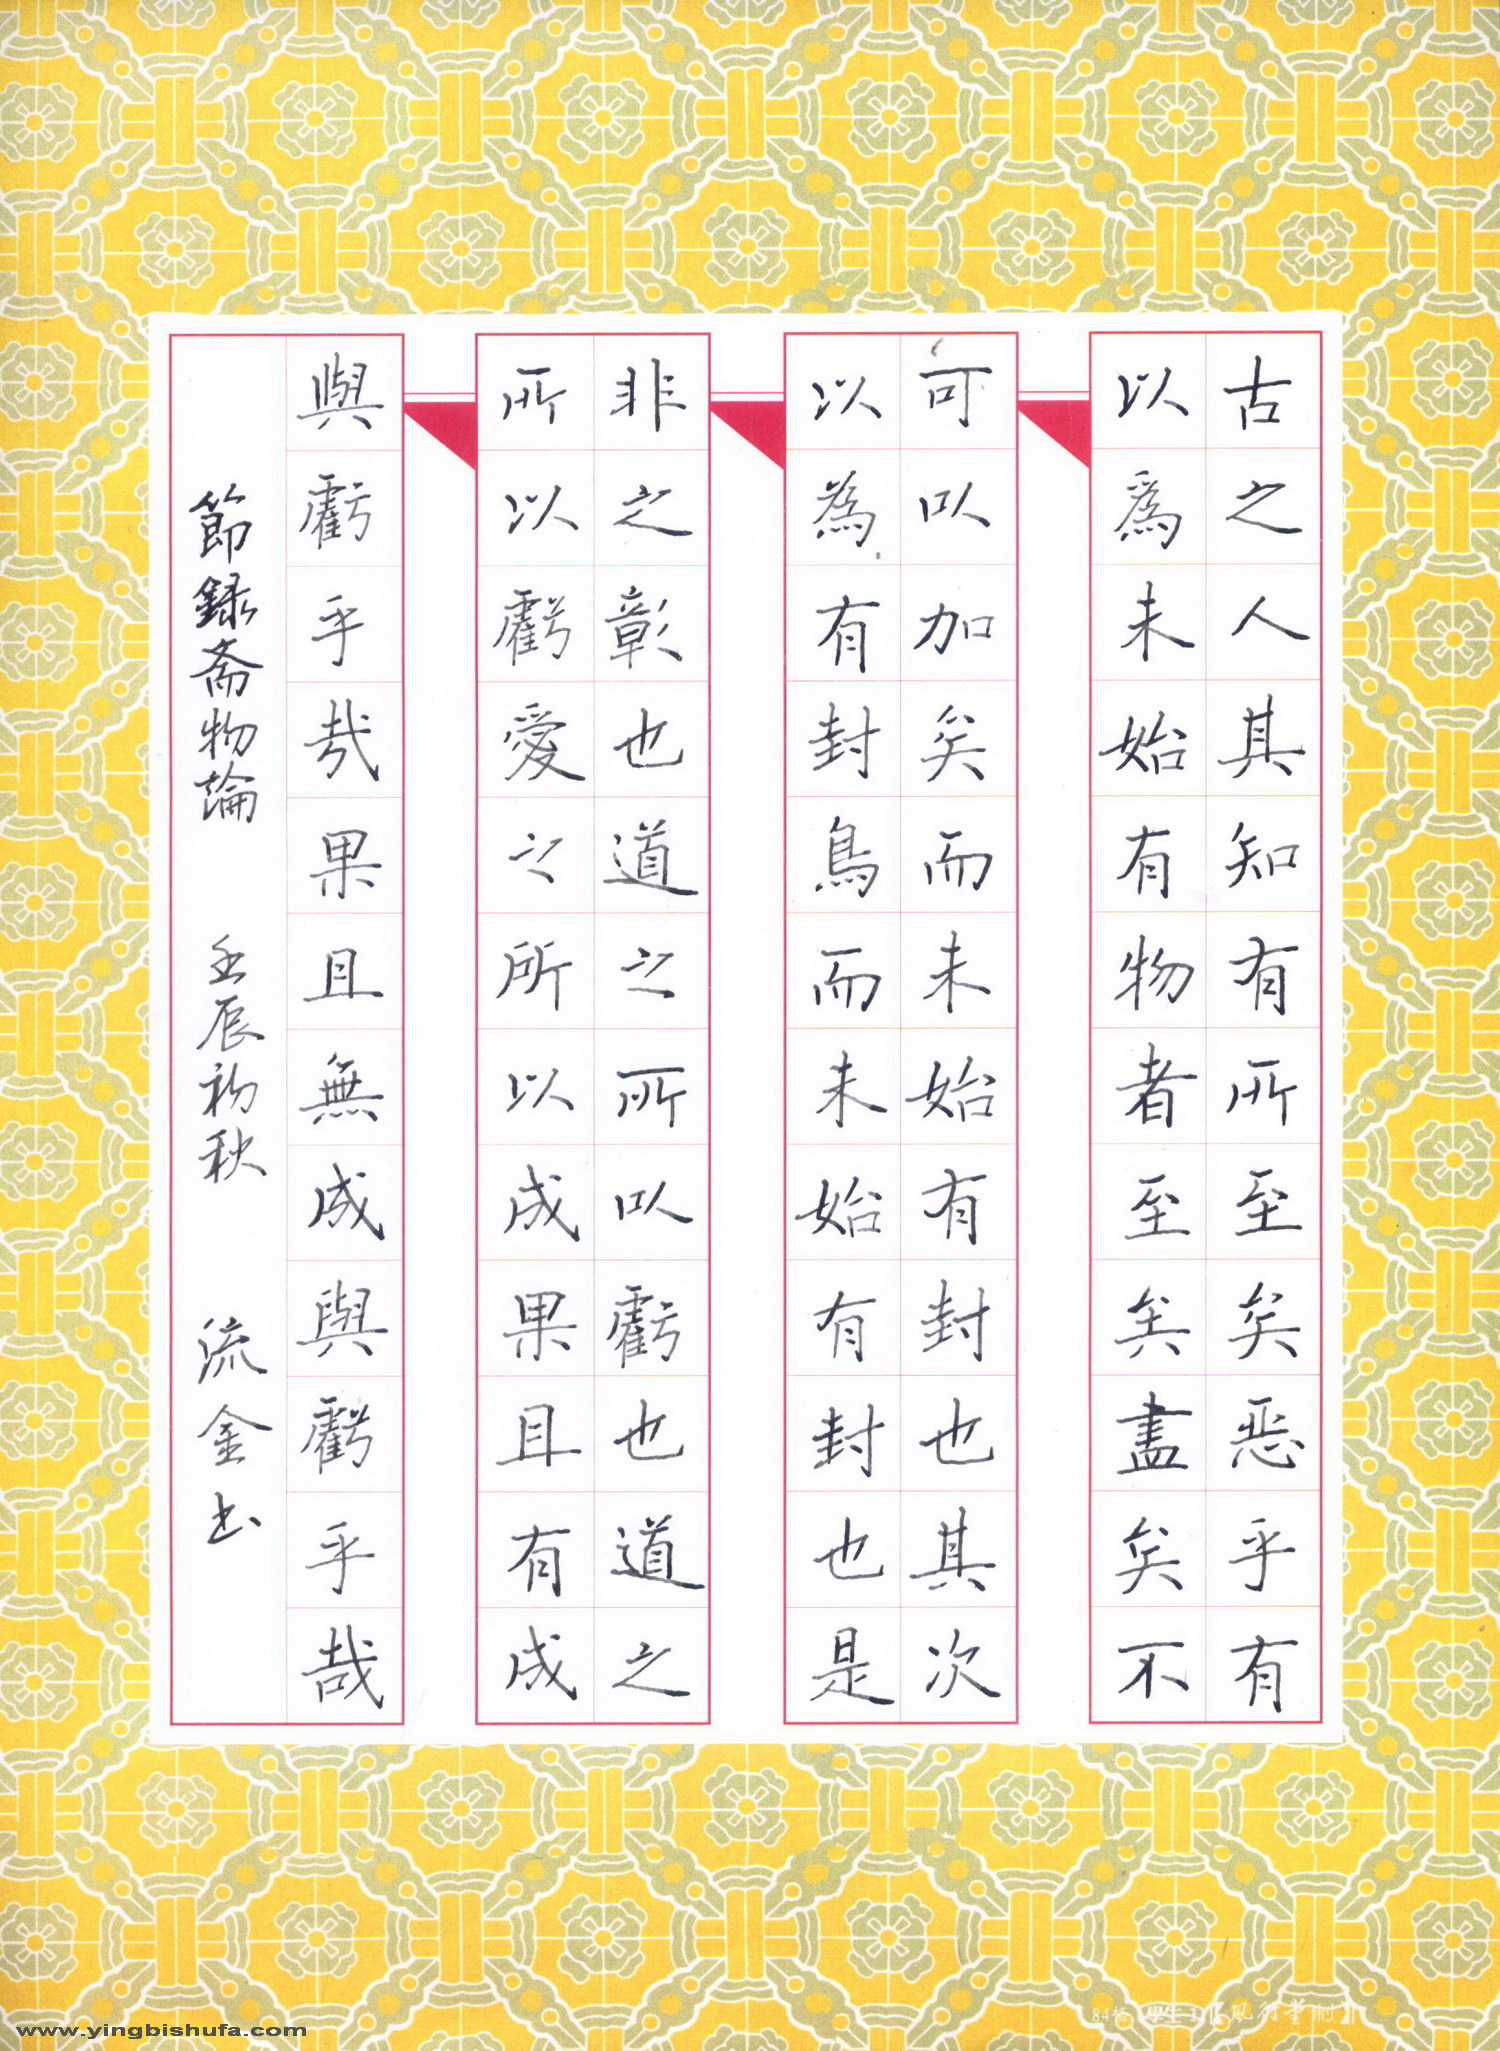 古之人其知有所至矣恶乎有
以爲未始有物者至矣盡矣不
可以加矣而未始有封也其次
以為有封鳥而未始有封也是
非之彰也道之所以虧也道之
所以虧愛之所以成果且有成
與虧乎哉果且無成與虧乎哉
節録斋物論 壬辰初秋 流金书
www.yingbishufa.com